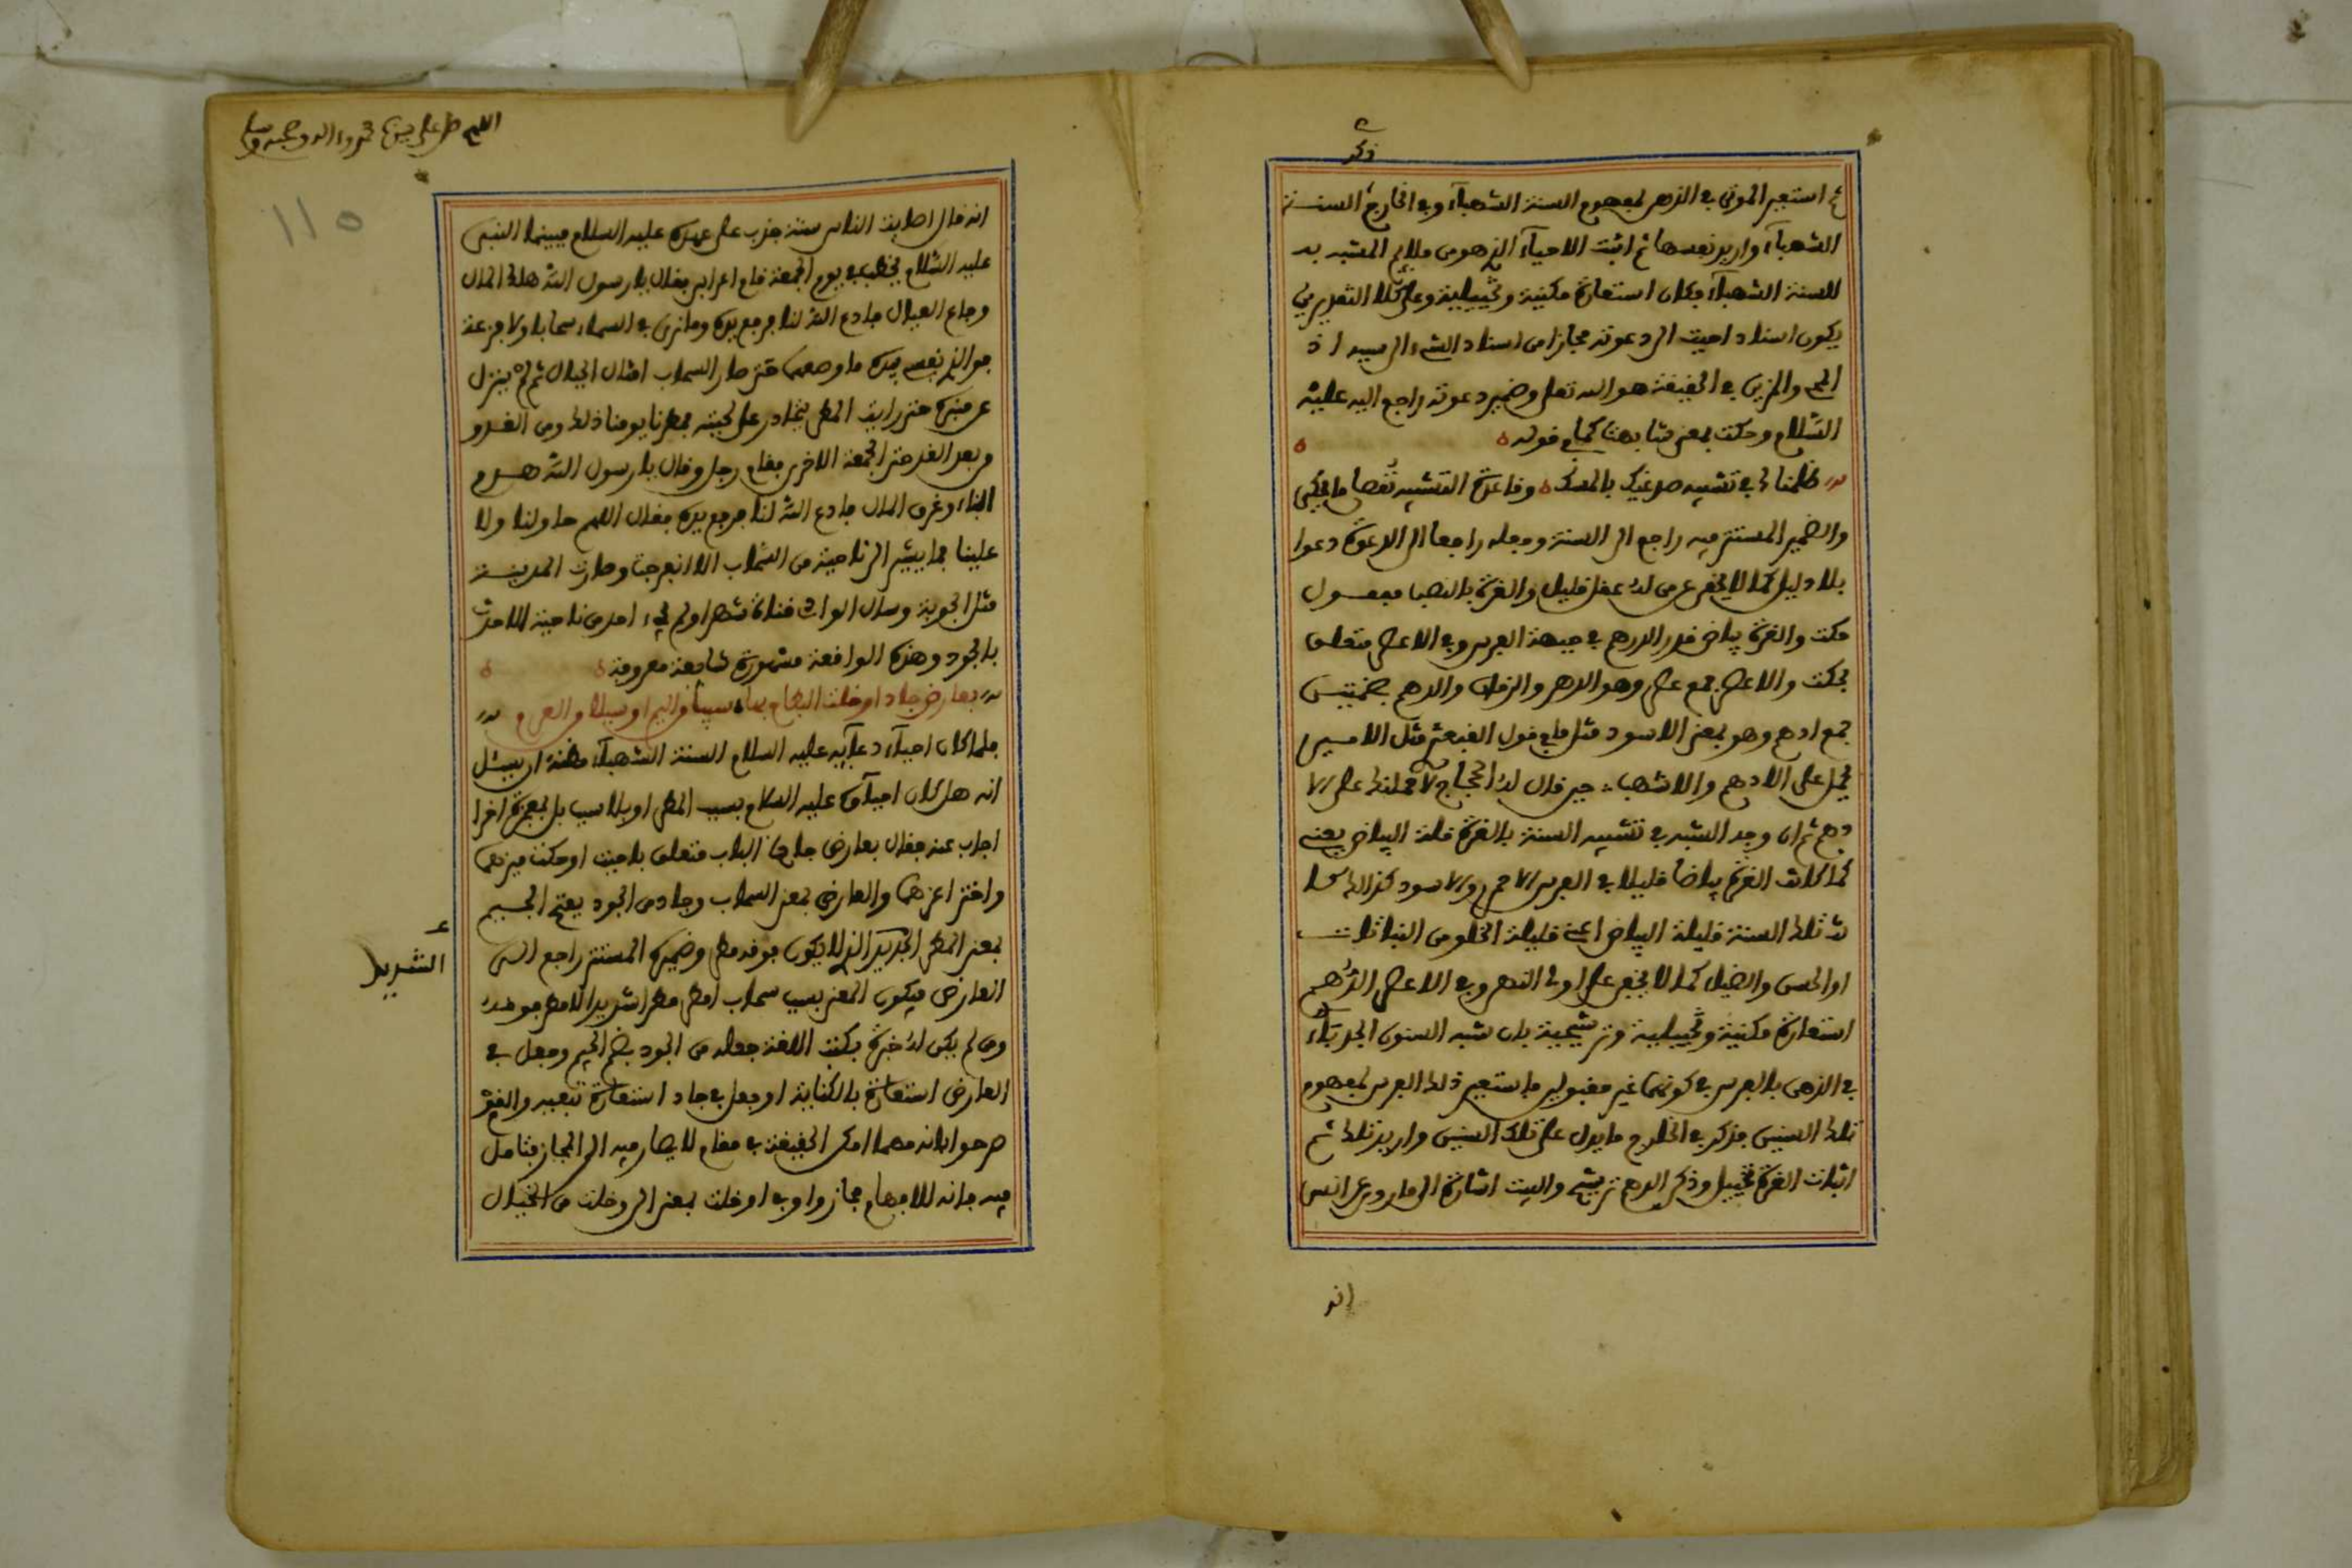 ذكر
ثم استعير الموتى في الذهن لمفهوم السنة الشهباء وفي الخارج السنة
الشهباء واريد نفسها ثم اثبت الاحياء الذي هو من ملايم المشبه به
للسنة الشهباء فكان استعارة مكنية وتخييلية وعلى كلا التقديرين
يكون اسناد احيت الى دعوته مجازا من اسناد الشيء الى سببه اذ
المحي والمزين في الحقيقة هو الله تعلى وضمير دعوته راجع اليه عليه
السلام وحكت بمعنى شابهت كما في قوله
ظلمناك في تشبيه صدغيك بالمسك وقاعدة التشبيه نقصان ما يحكى
والضمير المستتر فيه راجع الى السنة وجعله راجعا الى الدعوة دعوا
بلا دليل كما لا يخفى عن من له عقل قليل والغرة بالنصب مفعول
حكت والغرة بياض قدر الدرهم في جبهة الفرس وفي الاعصر متعلق
بحكت والاعصر جمع عصر وهو الدهر والزمان والدهم بضمتين
جمع ادهم وهو بمعنى الاسود مثل ما في قول القبعثرى مثل الامير
يحمل على الادهم والاشهب حين قال له الحجاج لاحملنك على الا
دهم ثم ان وجه الشبه في تشبيه السنة بالغرة قلة البياض يعني
كما كانت الغرة بياضا قليلا في الفرس الاحمر والاسود كذالك كا
نت تلك السنة قليلة البياض اعني قليلة الخلو من النباتات
او الحسن والضياء كما لا يخفى على اولي النهى وفي الاعصر الدهم
استعارة مكنية وتخييلية وترشيحية بان شبه السنون الجدباء
في الذهن بالفرس في كونهما غير مقبولين فاستعير ذلك الفرس لمفهوم
تلك السنين فذكر في الخارج ما يدل على تلك السنين واريد تلك ثم
اثبات الغرة تخييل وذكر الدهم ترشيح والبيت اشارة الى ما روي عن انس
انه
اللهم صل على سيدنا محمد واله وصحبه وسلم
١١٥
انه قال اصابت الناس سنة جدب على عهده عليه السلام فبينما النبي
عليه السلام يخطب في يوم الجمعة قام اعرابي فقال يا رسول الله هلك المال
وجاع العيال فادع الله لنا فرفع يده وما نرى في السماء سحابا ولا قزعة
فوالذي نفسي بيده ما وضعها حتى صار السحاب امثال الجبال ثم لم ينزل
عن منبره حتى رايت المطر يتحادر على لحيته فمطرنا يومنا ذلك ومن الغد و
من بعد الغد حتى الجمعة الاخرى فقام رجل وقال يا رسول الله هدم
البناء وغرق المال فادع الله لنا فرفع يده فقال اللهم حاولنا ولا
علينا فما يشير الى ناحية من السحاب الا انفرجت وصارت المدينة
مثل الجوبة وسال الوادي قناة شهرا ولم يجيء احد من ناحية الا حدث
بالجود وهذه الواقعة مشهورة شايعة معروفة
بعارض جاد او خلت البطاح بها سيبا من اليم او سيلا من العرم
فلما كان احياء دعائه عليه السلام السنة الشهباء مظنة ان يسئل
انه هل كان احياؤه عليه السلام بسبب المطر او بلا سبب بل بمعجزة اخرا
اجاب عنه فقال بعارض جاد فالباب متعلق باحيت او حكت
والعارض بمعنى السحاب وجاد من الجود بفتح الجيم
بمعنى المطر الجديد الذي لا يكون فوقه مطر وضميره المستتر راجع الى
الشديد
العارض فيكون المعنى بسبب سحاب امطر مطرا شديدا لا مطر فوقه
ومن لم يكن له خبرة بكتب اللغة جعله من الجود بضم الجيم وجعل في
العارض استعارة بالكناية او جعل في جاد استعارة تبعية والقوم
صرحوا بانه مهما امكن الحقيقة في مقام لا يصار فيه الى المجاز فتامل
فيه فانه للافهام مجاز واو في او خلت بمعنى الى وخلت من الخيال